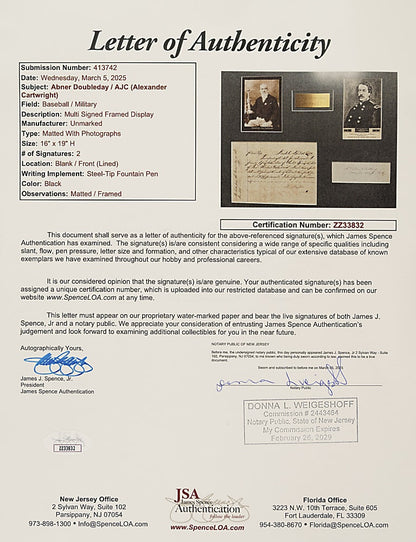 Letter of Authenticity
Submission Number: 413742
Date: Wednesday, March 5, 2025
Subject: Abner Doubleday / AJC (Alexander
Cartwright)
Field: Baseball / Military
Description: Multi Signed Framed Display
Manufacturer: Unmarked
Type: Matted With Photographs
Size: 16" x 19" H
# of Signatures: 2
Location: Blank / Front (Lined)
Writing Implement: Steel-Tip Fountain Pen
Color: Black
Observations: Matted / Framed
Certification Number: ZZ33832
This document shall serve as a letter of authenticity for the above-referenced signature(s), which James Spence
Authentication has examined. The signature(s) is/are consistent considering a wide range of specific qualities including
slant, flow, pen pressure, letter size and formation, and other characteristics typical of our extensive database of known
exemplars we have examined throughout our hobby and professional careers.
It is our considered opinion that the signature(s) is/are genuine. Your authenticated signature(s) has been
assigned a unique certification number, which is uploaded into our restricted database and can be confirmed on our
website www.SpenceLOA.com at any time.
This letter must appear on our proprietary water-marked paper and bear the live signatures of both James J.
Spence, Jr and a notary public. We appreciate your consideration of entrusting James Spence Authentication's
judgement and look forward to examining additional collectibles for you in the near future.
Autographically Yours,
James J. Spence, Jr.
President
James Spence Authentication
NOTARY PUBLIC OF NEW JERSEY
Before me, the undersigned notary public, this day personally appeared James J. Spence, Jr 2 Sylvan Way - Suite
102, Parsippany, NJ 07054, to me known, who being duly sworn according to law
Sworn and subscribed to before me on March 05, 2025
Notary Public
DONNA L. WEIGESHOFF
Commission # 2443464
Notary Public, State of New Jersey
My Commission Expires
February 26, 2029
ZZ33832
New Jersey Office
2 Sylvan Way, Suite 102
Parsippany, NJ 07054
973-898-1300 • Info@SpenceLOA.com
JSA
James Spence
Authentication
follow the leader
www.SpenceLOA.com
Florida Office
3223 N.W. 10th Terrace, Suite 605
Fort Lauderdale, FL 33309
954-380-8670 • Florida@SpenceLOA.com